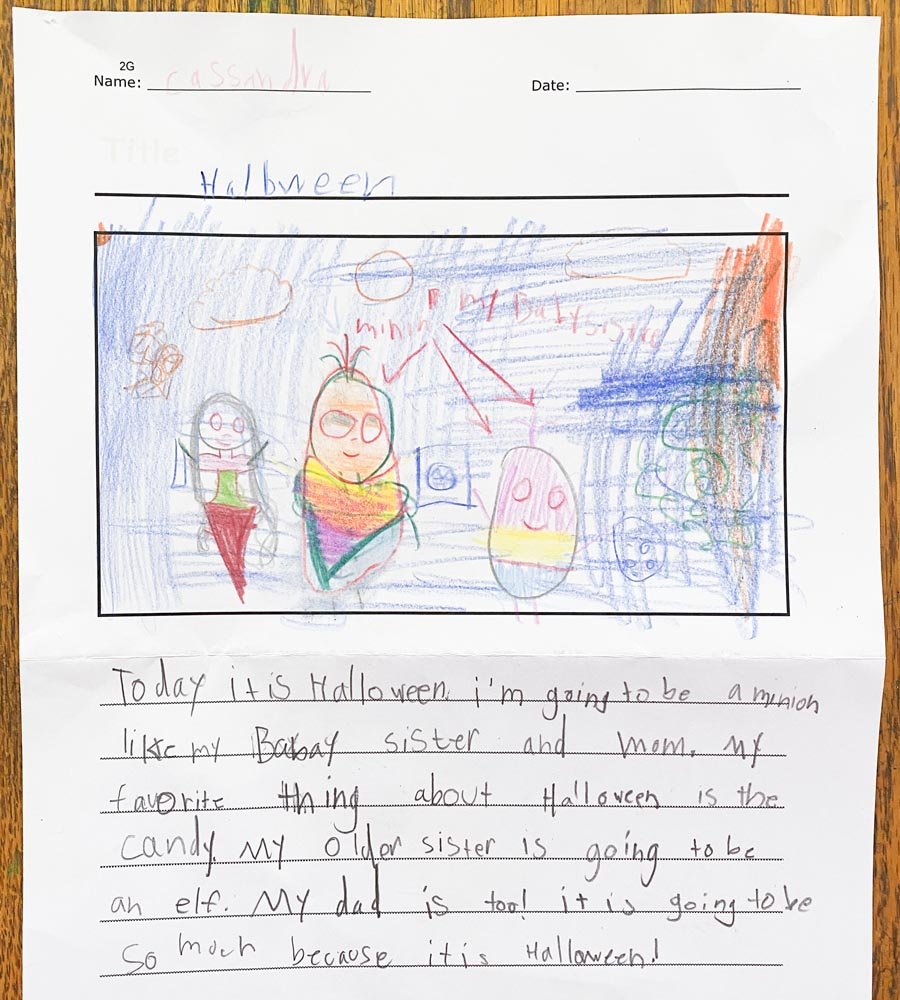 2G
Name: cassandra
Date:
Title
Halbween
my Baby sister
minin
Today it is Halloween. i'm going to be a minion
like my Babay sister and mom. My
favorite thing about Halloween is the
candy. My older sister is going to be
an elf. My dad is too! it is going to be
so much because it is Halloween!